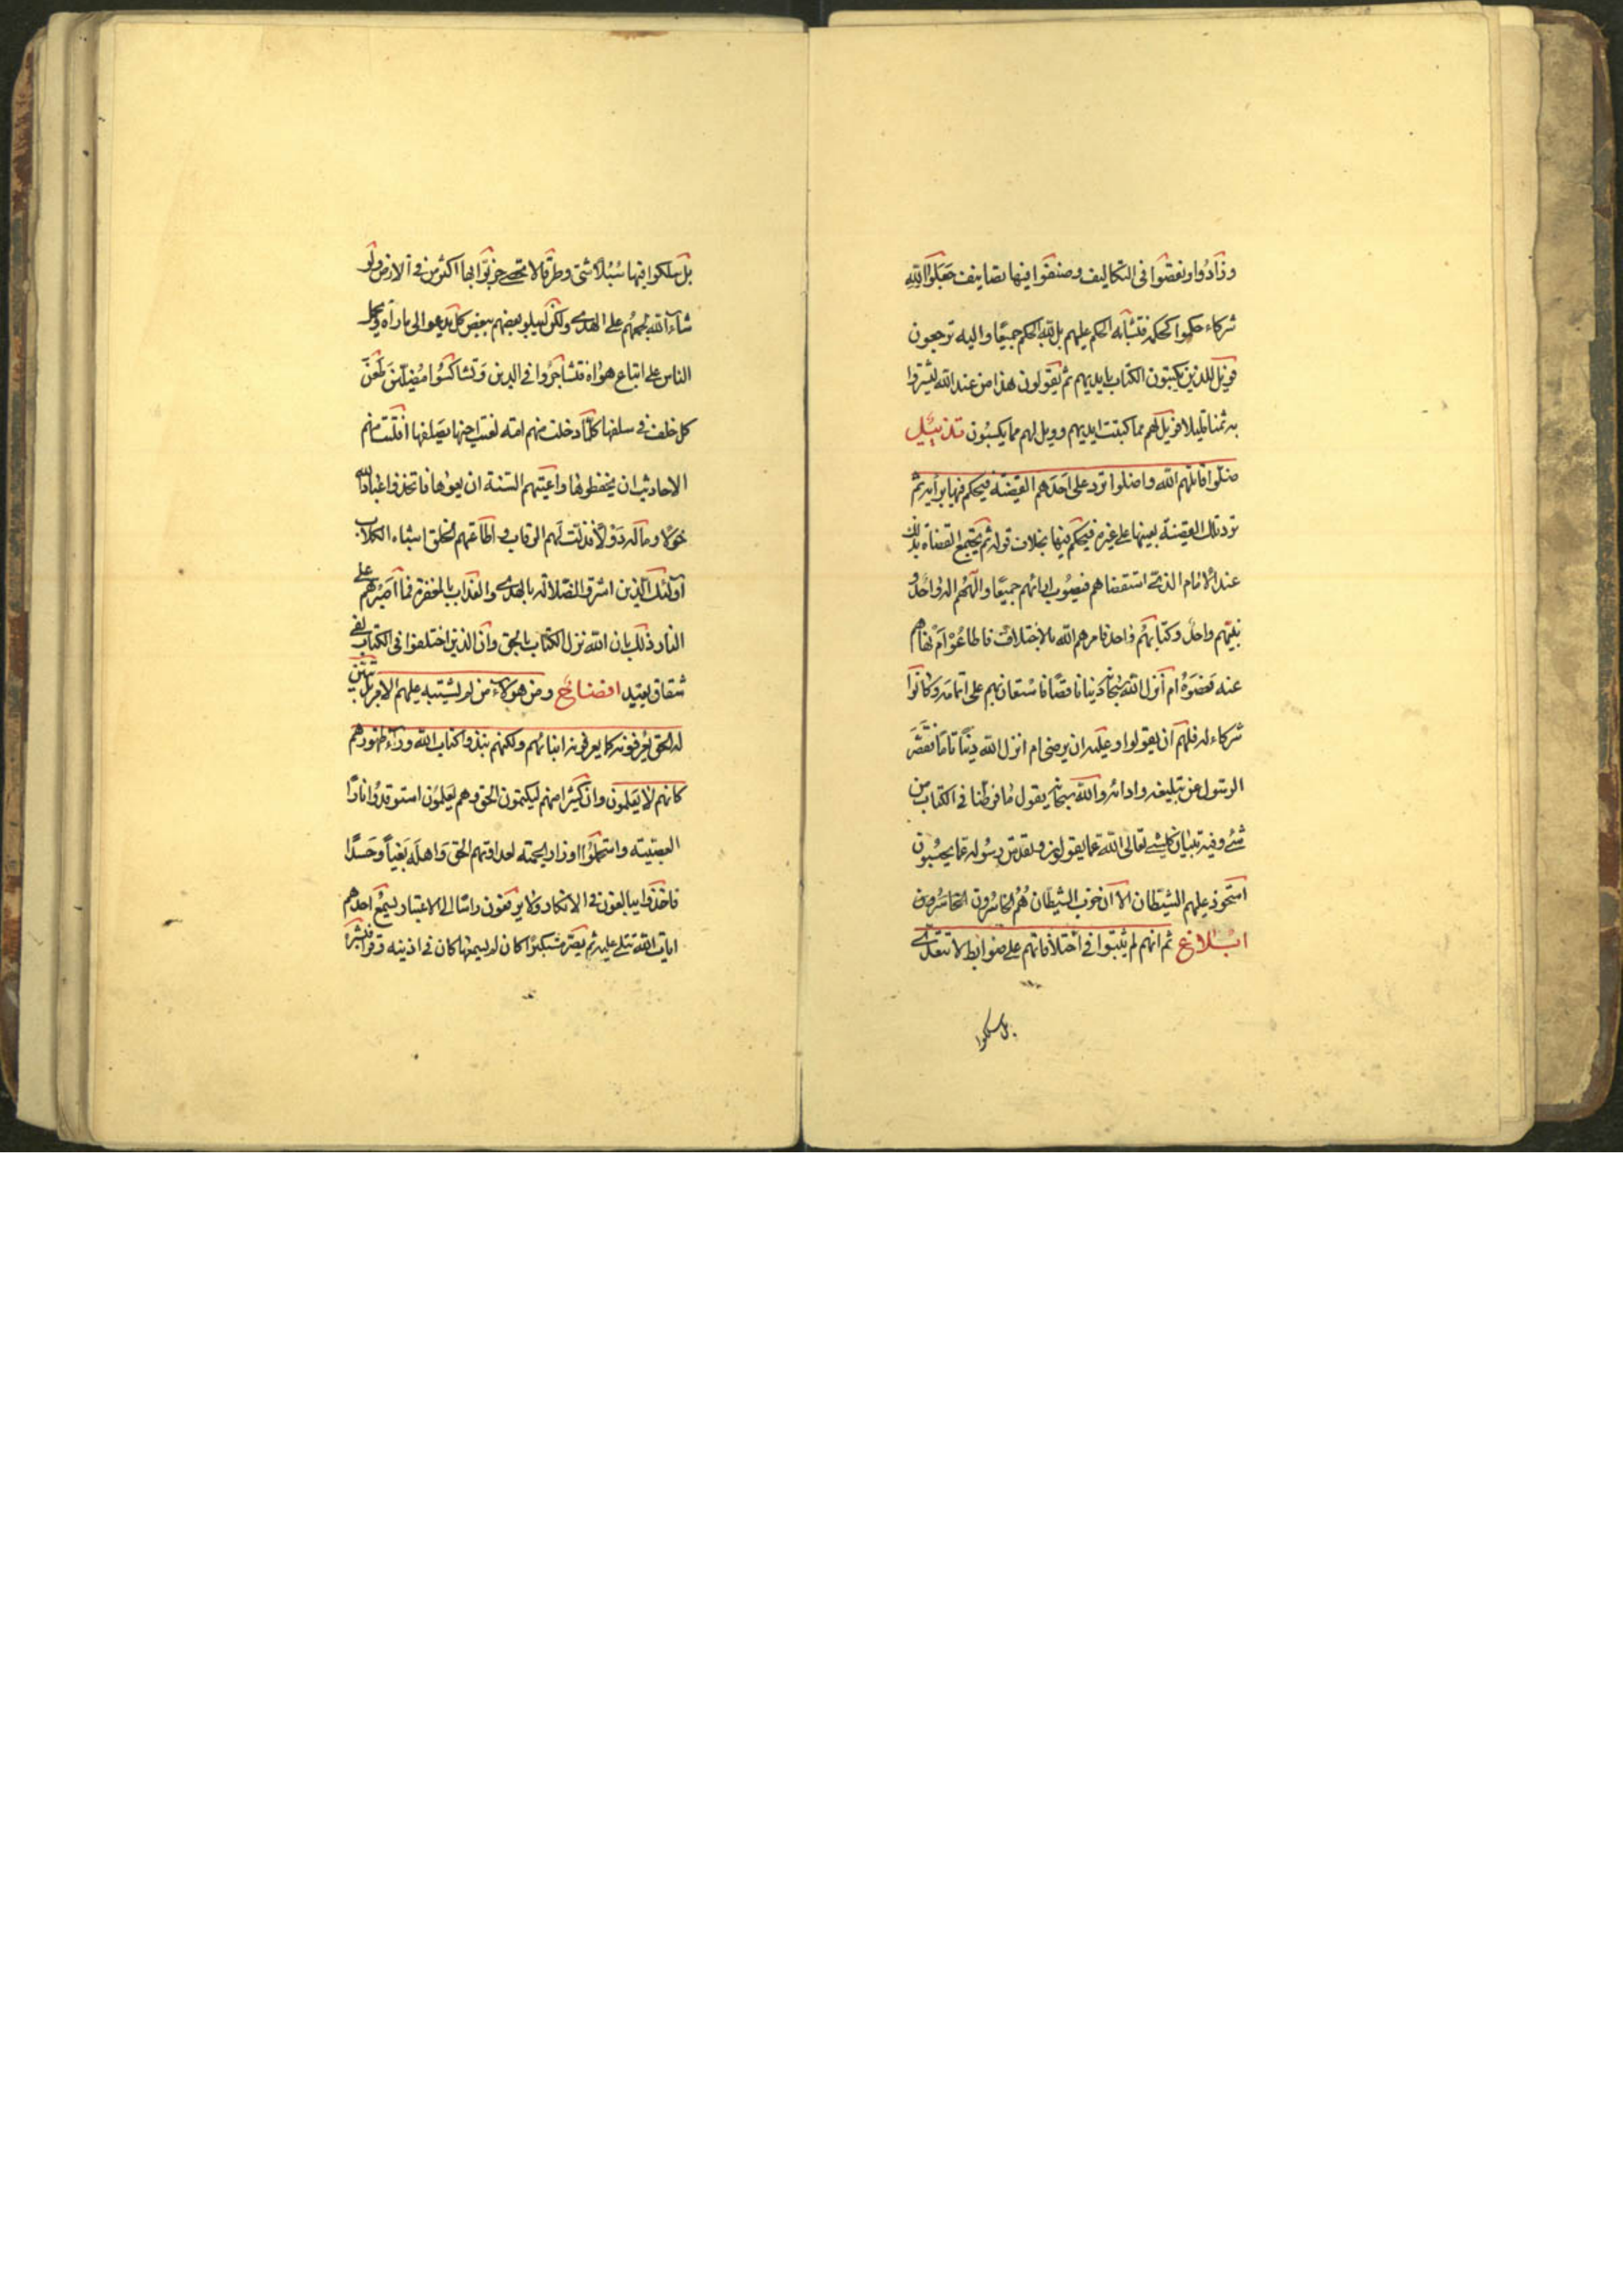 وزادوا ونقصوا فى التكاليف وصنفوا فيها تصانيف جعلوا لله
شركاء حكموا كحكمه فتشابه الحكم عليهم بل لله الحكم جميعا واليه ترجعون
فويل للذين يكتبون الكتاب بايديهم ثم يقولون هذا من عند الله ليشتروا
به ثمنا قليلا فويل لهم مما كتبت ايديهم وويل لهم مما يكسبون تذئيل
ضلوا قاتلهم الله واضلوا ترد على احدهم القضية فيحكم فيها برأيه ثم
ترد تلك القضية بعينها على غيره فيحكم فيها بخلاف قوله ثم يجتمع القضاة بذلك
عند الامام الذى استقضاهم فيصوب ارائهم جميعا والههم اله واحد و
نبيهم واحد وكتابهم واحد فامرهم الله بالاختلاف فاطاعوه ام نهاهم
عنه فعصوه ام أنزل الله سبحانه دينا ناقصا فاستعان بهم على اتمامه وكانوا
شركاء له فلهم ان يقولوا وعليه ان يرضى ام انزل الله دينا تاما فقصر
الرسول عن تبليغه وادائه والله سبحانه يقول ما فرطنا فى الكتاب من
شئ وفيه تبيان كلشئ تعالى الله عما يقولون وتقدس رسوله عما يحسبون
استحوذ عليهم الشيطان الا ان حزب الشيطان هم الخاسرون الخاسرون
ابلاغ ثم انهم لم يثبتوا فى اختلافاتهم على ضوابط لا تتعدى
بل سلكوا
بل سلكوا فيها سبلا شتى وطرقا لا تحصى حزبوا بها اكثر من فى الارض ولو
شاء الله لجمعهم على الهدى ولكن ليبلو بعضهم ببعض كل يدعو الى ما رآه ويحمل
الناس على اتباع هواه فتشاجروا فى الدين وتشاكسوا مضلين طعن
كل خلف فى سلفها كلما دخلت منهم امة لعنت اختها افلتت منهم
الاحاديث ان يحفظوها واعيتهم السنة ان يعوها فاتخذوا عباد الله
خولا وماله دولا فذلت لهم الرقاب و اطاعتهم الخلق اشباه الكلاب
اولئك الذين اشتروا الضلالة بالهدى والعذاب بالمغفرة فما اصبرهم على
النار ذلك بان الله نزل الكتاب بالحق وان الذين اختلفوا فى الكتاب لفى
شقاق بعيد افضائح ومن هؤلاء من لم يشتبه عليهم الامر بل تبين
له الحق يعرفونه كما يعرفون ابنائهم ولكنهم نبذوا كتاب الله وراء ظهورهم
كانهم لا يعلمون وان كثيرا منهم ليكتمون الحق وهم يعلمون استوقدوا نار
العصبية واستحملوا اوزار الحمية لعداوتهم الحق واهله بغيا وحسدا
فاخذوا يبالغون فى الانكار ولا يرفعون راسا الى الاعتبار يسمع احدهم
ايات الله تتلى عليه ثم يصر مستكبرا كان لم يسمعها كان فى اذنيه وقرا فبشره